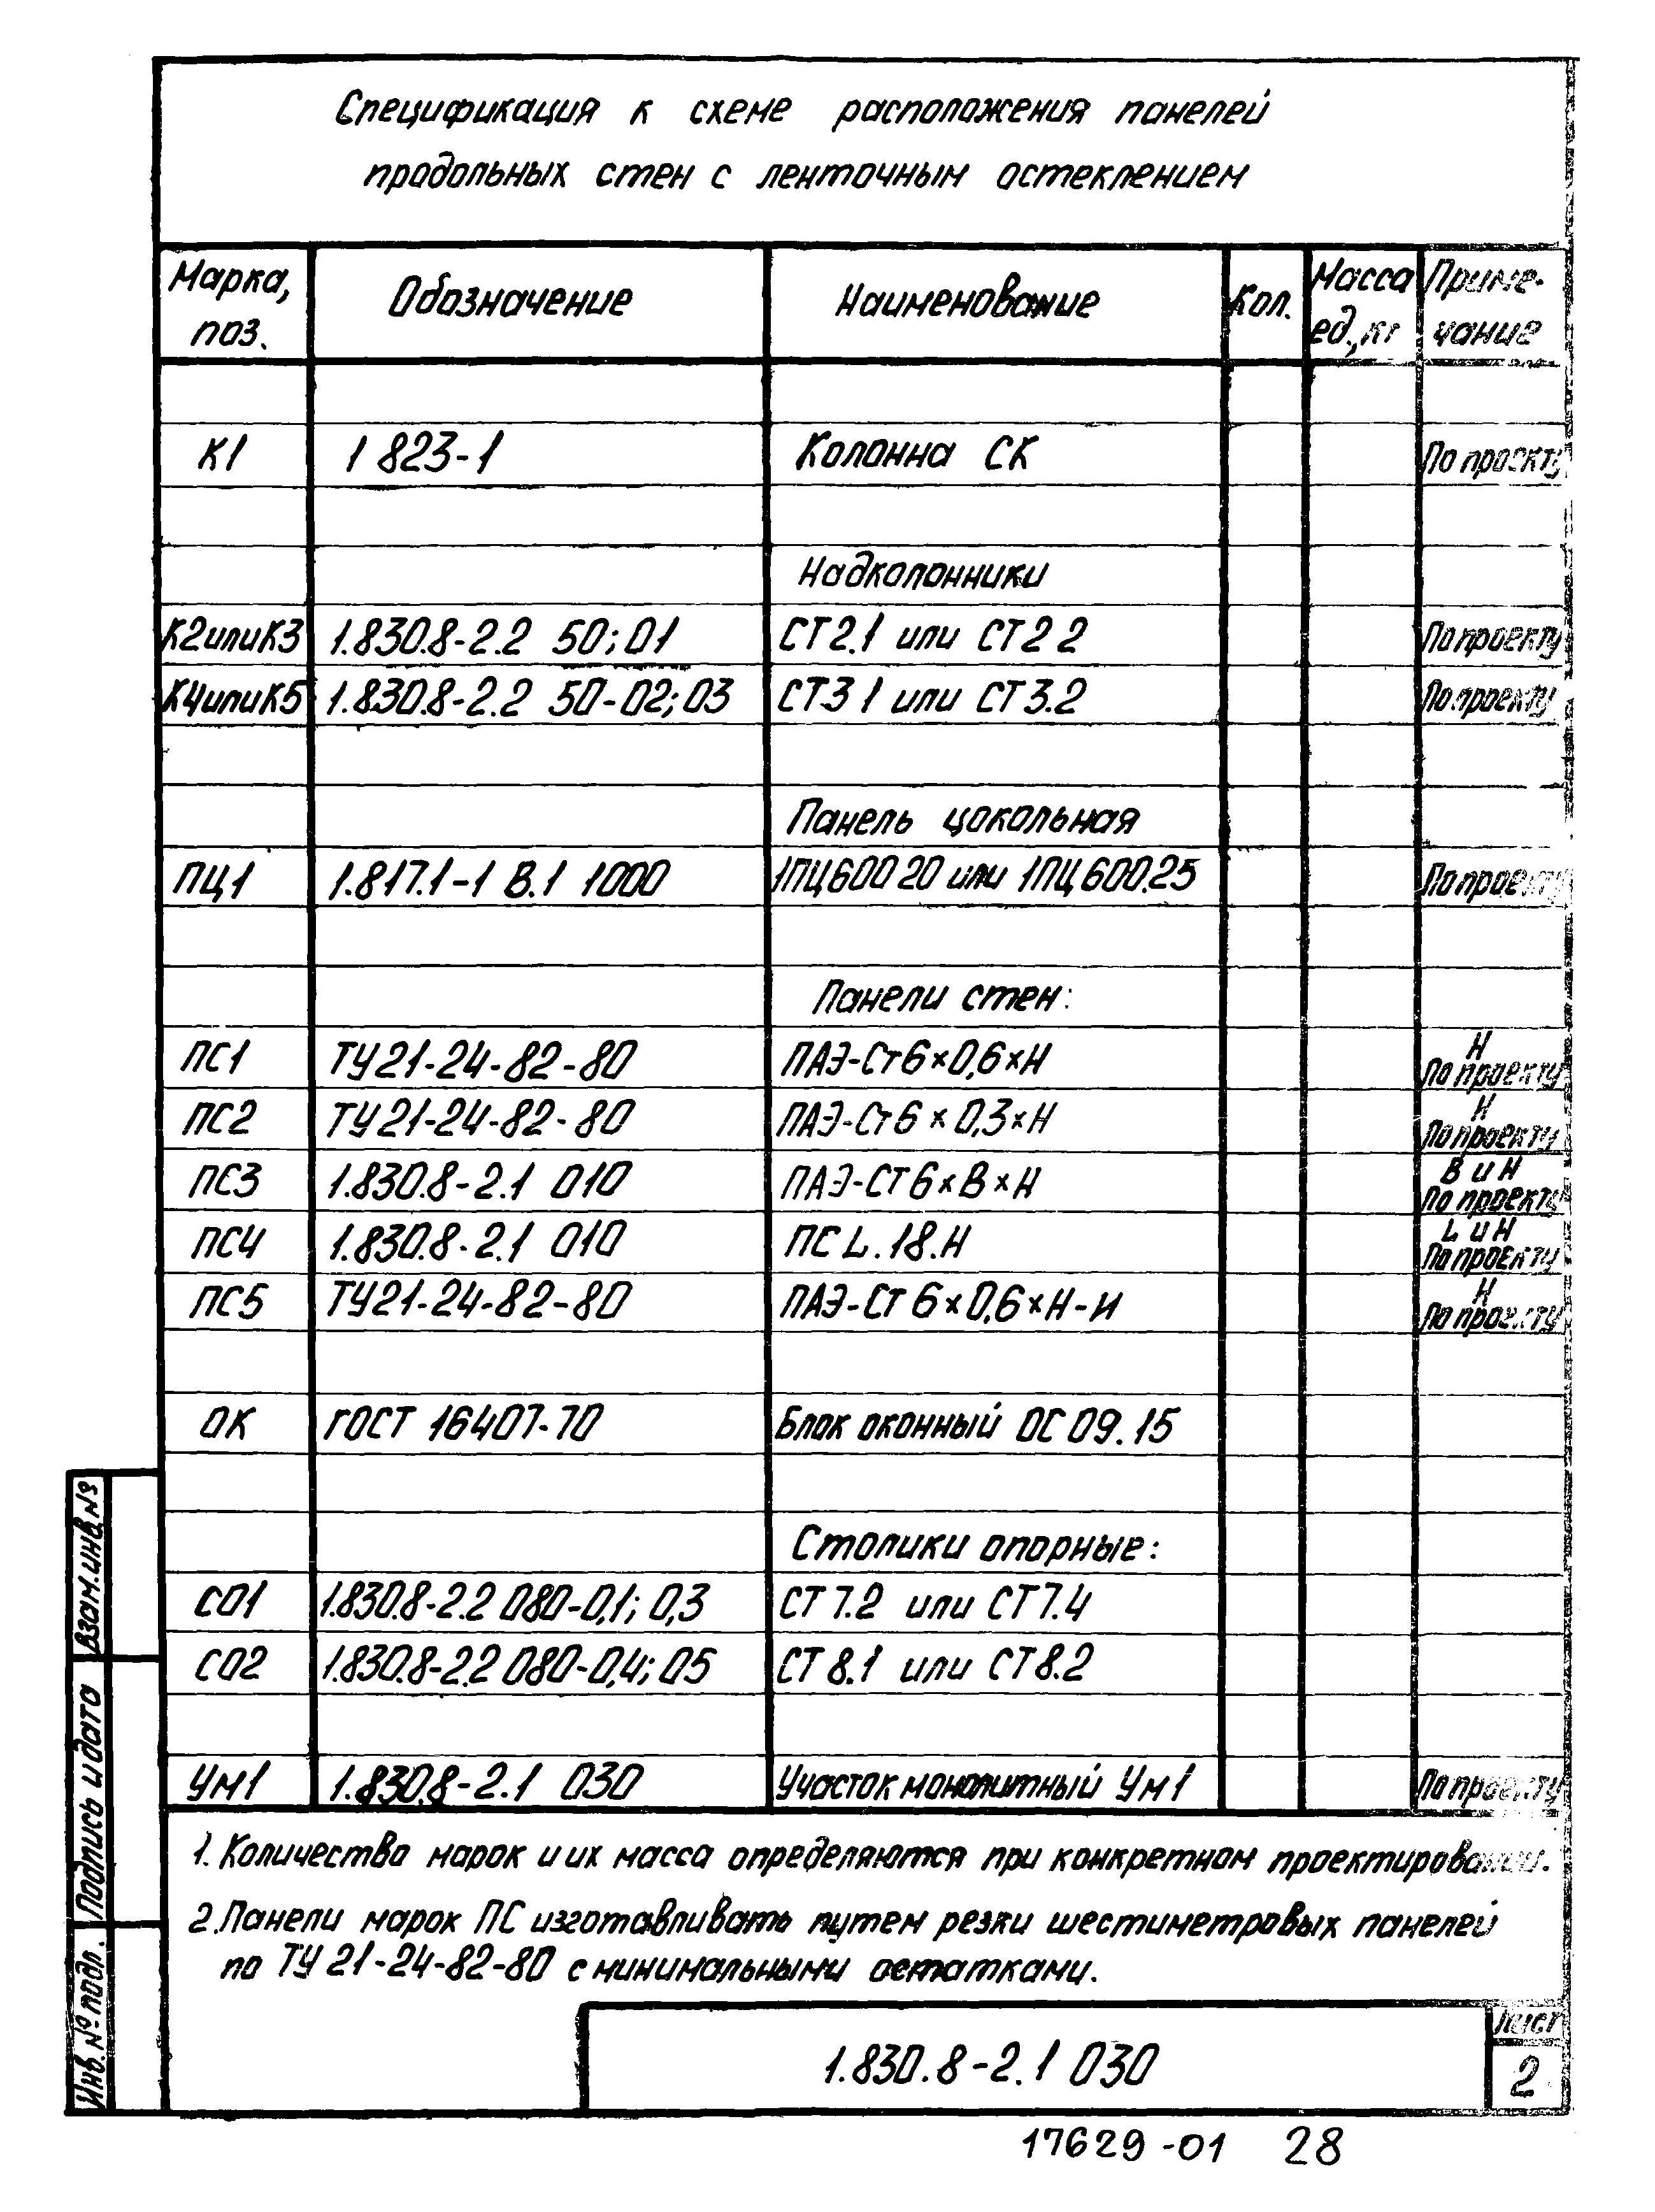 Спецификация к схеме расположения панелей
продольных стен с ленточным остеклением
Марка, поз. Обозначение Наименование Кол. Масса ед., кг Примечание
К1 1 823-1 Колонна СК По проекту
Надколонники
К2 или К3 1.830.8-2.2 50; 01 СТ2.1 или СТ2 2 По проекту
К4 или К5 1.830.8-2.2 50-02; 03 СТ3 1 или СТ3.2 По проекту
Панель цокольная
ПЦ1 1.817.1-1 В.1 1000 1ПЦ600 20 или 1ПЦ600.25 По проекту
Панели стен:
ПС1 ТУ21-24-82-80 ПАЭ-Ст6×0,6×Н Н По проекту
ПС2 ТУ21-24-82-80 ПАЭ-Ст6×0,3×Н Н По проекту
ПС3 1.830.8-2.1 010 ПАЭ-СТ6×В×Н В и Н По проекту
ПС4 1.830.8-2.1 010 ПС L.18.Н L и Н По проекту
ПС5 ТУ21-24-82-80 ПАЭ-СТ6×0,6×Н-и Н По проекту
ОК ГОСТ 16407-70 Блок оконный ОС 09.15
Столики опорные:
СО1 1.830.8-2.2 080-0,1; 0,3 СТ7.2 или СТ7.4
СО2 1.830.8-2.2 080-0,4; 05 СТ8.1 или СТ8.2
Ум1 1.830.8-2.1 030 Участок монолитный Ум1 По проекту
1. Количество марок и их масса определяются при конкретном проектировании.
2. Панели марок ПС изготавливать путем резки шестиметровых панелей
по ТУ 21-24-82-80 с минимальными остатками.
Взам. инв. №
Подпись и дата
Инв. № подл.
1.830.8-2.1 030
Лист
2
17629-01 28